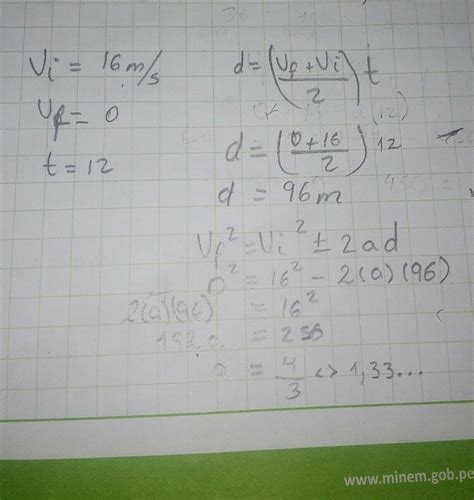 Vi = 16 m/s
Vf = 0
t = 12
d = ((Vf + Vi)/2) t
d = ((0 + 16)/2) 12
d = 96m
Vf² = Vi² ± 2ad
0² = 16² - 2(a)(96)
2(a)(96) = 16²
192 a = 256
a = 4/3 <> 1,33...
www.minem.gob.pe